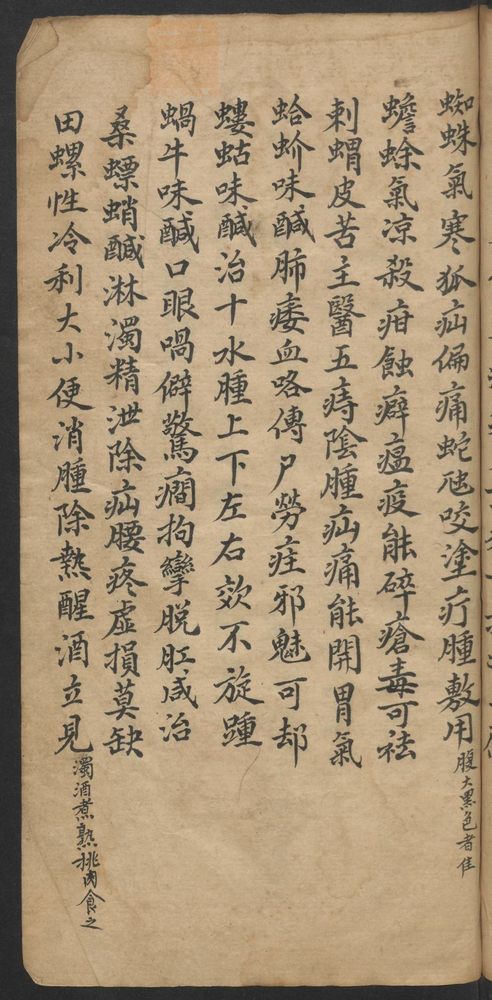 蜘蛛氣寒狐疝偏痛蛇虺咬塗疔腫敷用腹大黑色者佳
蟾蜍氣凉殺疳蝕癖瘟疫能碎瘡毒可祛
刺蝟皮苦主醫五痔陰腫疝痛能開胃氣
蛤蚧味醎肺痿血咯傳尸勞疰邪魅可却
螻蛄味醎治十水腫上下左右效不旋踵
蝸牛味醎口眼喎僻驚癎拘攣脱肛咸治
桑螵蛸醎淋濁精泄除疝腰疼虛損莫缺
田螺性冷利大小便消腫除熱醒酒立見濁酒煮熟挑肉食之